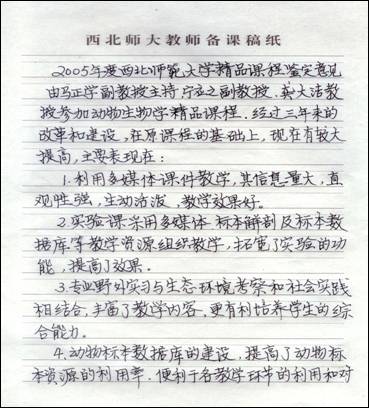 西北师大教师备课稿纸
2005年度西北师范大学精品课程鉴定意见
由马正学副教授主持宁应之副教授、大洁教
授参加动物生物学精品课程,经过三年来的
改革和建设,在原课程的基础上,现在有较大
提高,主要表现在:
1.利用多媒体课件教学,其信息量大,直
观性强,生动活泼,教学效果好。
2.实验课采用多媒体、标本解剖及标本数
据库等教学资源组织教学,拓宽了实验的功
能,提高了效果。
3.专业野外实习与生态环境考察和社会实践
相结合,丰富了教学内容,更有利培养学生的综
合能力。
4.动物标本数据库的建设,提高了动物标
本资源的利用率,便利于各教学环节的利用和对